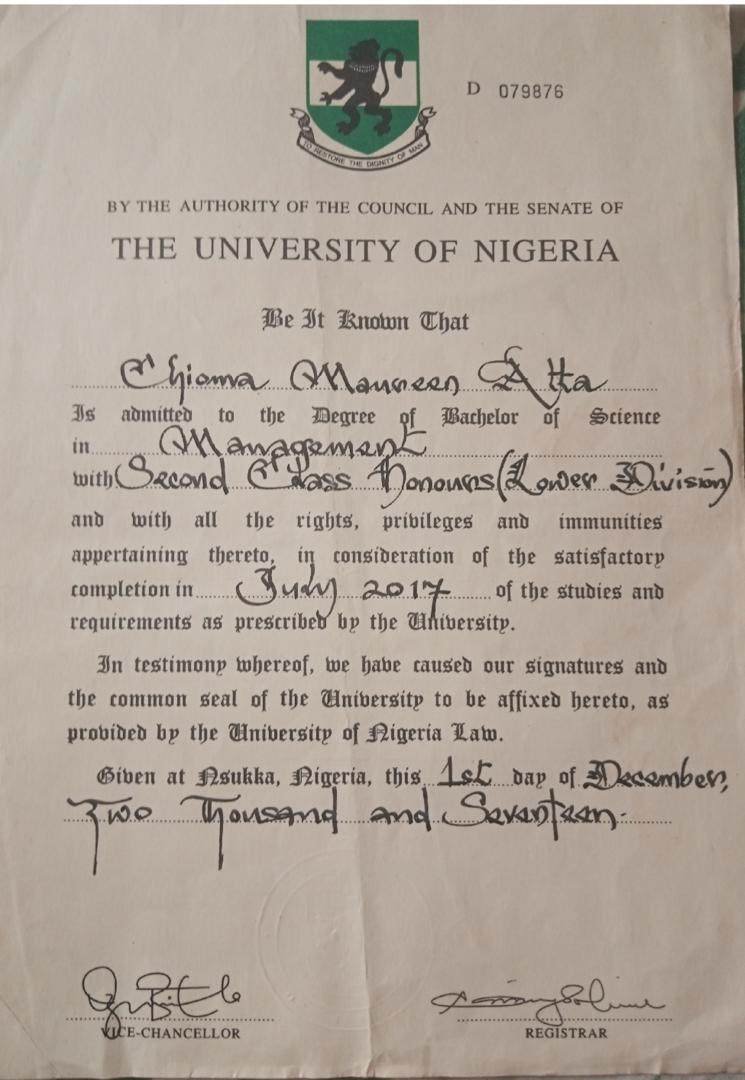 D 079876
TO RESTORE THE DIGNITY OF MAN
BY THE AUTHORITY OF THE COUNCIL AND THE SENATE OF
THE UNIVERSITY OF NIGERIA
Be It Known That
Chioma Maureen Atta
Is admitted to the Degree of Bachelor of Science
in Management
with Second Class Honours (Lower Division)
and with all the rights, privileges and immunities
appertaining thereto, in consideration of the satisfactory
completion in July 2017 of the studies and
requirements as prescribed by the University.
In testimony whereof, we have caused our signatures and
the common seal of the University to be affixed hereto, as
provided by the University of Nigeria Law.
Given at Nsukka, Nigeria, this 1st day of December,
Two Thousand and Seventeen.
VICE-CHANCELLOR
REGISTRAR